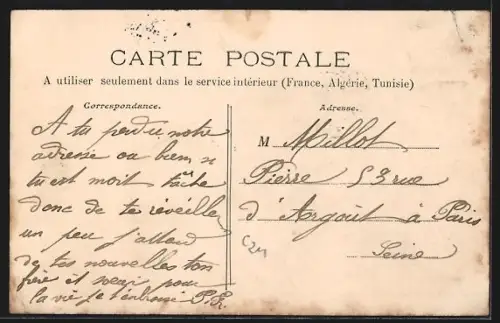 CARTE POSTALE
A utiliser seulement dans le service intérieur (France, Algérie, Tunisie)
Correspondance.
A tu perdu notre
adresse ou bien si
tu est mort tâche
donc de te réveiller
un peu j'attend
de tes nouvelles ton
frère et sœur pour
la vie je t'embrasse P. L.
Adresse.
M Millot
Pierre 53 rue
d'Argout à Paris
Seine